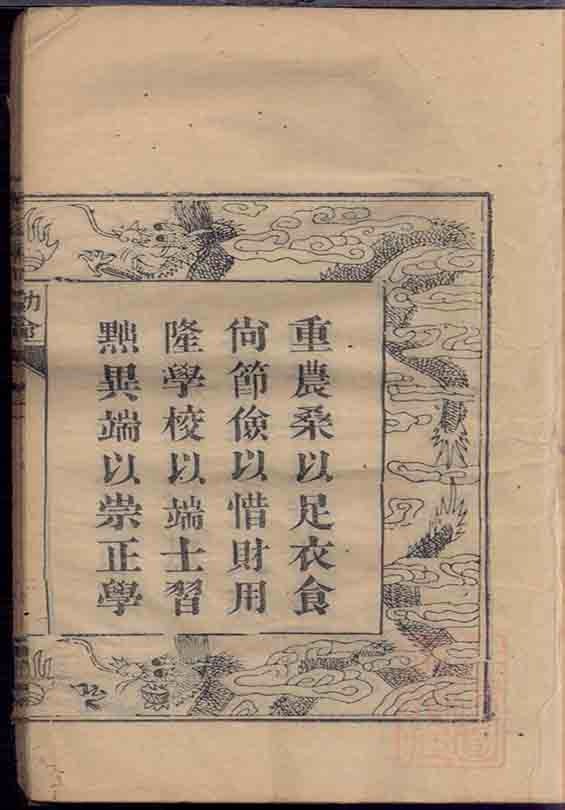 重農桑以足衣食
尙節儉以惜財用
隆學校以端士習
黜異端以崇正學